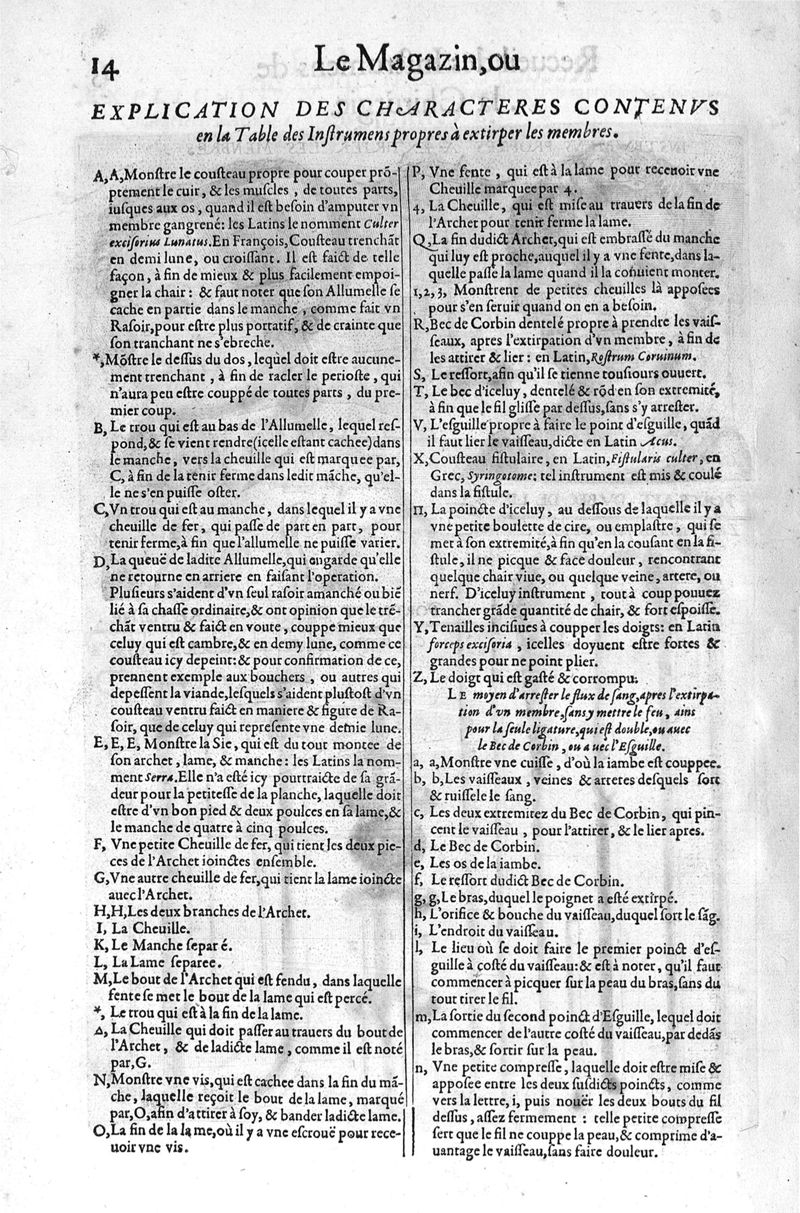 14
Le Magazin, ou
EXPLICATION DES CHARACTERES CONTENVS
en la Table des Inſtrumens propres à extirper les membres.
A, A, Monſtre le couſteau propre pour couper prō-
ptement le cuir, & les muſcles, de toutes parts,
iuſques aux os, quand il eſt beſoin d'amputer vn
membre gangrené: les Latins le nomment Culter
exciſorius Lunatus. En François, Couſteau trenchāt
en demi lune, ou croiſſant. Il eſt faict de telle
façon, à fin de mieux & plus facilement empoi-
gner la chair: & faut noter que ſon Allumelle ſe
cache en partie dans le manche, comme fait vn
Raſoir, pour eſtre plus portatif, & de crainte que
ſon tranchant ne s'ebreche.
*, Mōſtre le deſſus du dos, lequel doit eſtre aucune-
ment trenchant, à fin de racler le perioſte, qui
n'aura peu eſtre couppé de toutes parts, du pre-
mier coup.
B, Le trou qui eſt au bas de l'Allumelle, lequel reſ-
pond, & ſe vient rendre (icelle eſtant cachee) dans
le manche, vers la cheuille qui eſt marquee par,
C, à fin de la tenir ferme dans ledit māche, qu'el-
le ne s'en puiſſe oſter.
C, Vn trou qui eſt au manche, dans lequel il y a vne
cheuille de fer, qui paſſe de part en part, pour
tenir ferme, à fin que l'allumelle ne puiſſe varier.
D, La queuë de ladite Allumelle, qui engarde qu'elle
ne retourne en arriere en faiſant l'operation.
Pluſieurs s'aident d'vn ſeul raſoir amanché ou biē
lié à ſa chaſſe ordinaire, & ont opinion que le trē-
chāt ventru & faict en voute, couppe mieux que
celuy qui eſt cambre, & en demy lune, comme ce
couſteau icy depeint: & pour confirmation de ce,
prennent exemple aux bouchers, ou autres qui
depeſſent la viande, leſquels s'aident pluſtoſt d'vn
couſteau ventru faict en maniere & figure de Ra-
ſoir, que de celuy qui repreſente vne demie lune.
E, E, E, Monſtre la Sie, qui eſt du tout montee de
ſon archet, lame, & manche: les Latins la nom-
ment Serra. Elle n'a eſté icy pourtraicte de ſa grā-
deur pour la petiteſſe de la planche, laquelle doit
eſtre d'vn bon pied & deux poulces en ſa lame, &
le manche de quatre à cinq poulces.
F, Vne petite Cheuille de fer, qui tient les deux pie-
ces de l'Archet ioinctes enſemble.
G, Vne autre cheuille de fer, qui tient la lame ioincte
auec l'Archet.
H, H, Les deux branches de l'Archet.
I, La Cheuille.
K, Le Manche ſeparé.
L, La Lame ſeparee.
M, Le bout de l'Archet qui eſt fendu, dans laquelle
fente ſe met le bout de la lame qui eſt percé.
*, Le trou qui eſt à la fin de la lame.
Δ, La Cheuille qui doit paſſer au trauers du bout de
l'Archet, & de ladicte lame, comme il eſt noté
par, G.
N, Monſtre vne vis, qui eſt cachee dans la fin du mā-
che, laquelle reçoit le bout de la lame, marqué
par, O, afin d'attirer à ſoy, & bander ladicte lame.
O, La fin de la lame, où il y a vne eſcrouë pour rece-
uoir vne vis.
P, Vne fente, qui eſt à la lame pour receuoir vne
Cheuille marquee par 4.
4, La Cheuille, qui eſt miſe au trauers de la fin de
l'Archet pour tenir ferme la lame.
Q, La fin dudict Archet, qui eſt embraſſé du manche
qui luy eſt proche, auquel il y a vne fente, dans la-
quelle paſſe la lame quand il la conuient monter.
1, 2, 3, Monſtrent de petites cheuilles là appoſees
pour s'en ſeruir quand on en a beſoin.
R, Bec de Corbin dentelé propre à prendre les vaiſ-
ſeaux, apres l'extirpation d'vn membre, à fin de
les attirer & lier: en Latin, Roſtrum Coruinum.
S, Le reſſort, afin qu'il ſe tienne touſiours ouuert.
T, Le bec d'iceluy, dentelé & rōd en ſon extremité,
à fin que le fil gliſſe par deſſus, ſans s'y arreſter.
V, L'eſguille propre à faire le point d'eſguille, quād
il faut lier le vaiſſeau, dicte en Latin Acus.
X, Couſteau fiſtulaire, en Latin, Fiſtularis culter, en
Grec, Syringotome: tel inſtrument eſt mis & coulé
dans la fiſtule.
π, La poincte d'iceluy, au deſſous de laquelle il y a
vne petite boulette de cire, ou emplaſtre, qui ſe
met à ſon extremité, à fin qu'en la couſant en la fi-
ſtule, il ne picque & face douleur, rencontrant
quelque chair viue, ou quelque veine, artere, ou
nerf. D'iceluy inſtrument, tout à coup pouuez
trancher grāde quantité de chair, & fort eſpoiſſe.
Y, Tenailles inciſiues à coupper les doigts: en Latin
forceps exciſoria, icelles doyuent eſtre fortes &
grandes pour ne point plier.
Z, Le doigt qui eſt gaſté & corrompu.
LE moyen d'arreſter le flux de ſang, apres l'extirpa-
tion d'vn membre, ſans y mettre le feu, ains
pour la ſeule ligature, qui eſt double, ou auec
le Bec de Corbin, ou auec l'Eſguille.
a, a, Monſtre vne cuiſſe, d'où la iambe eſt couppee.
b, b, Les vaiſſeaux, veines & arteres deſquels ſort
& ruiſſele le ſang.
c, Les deux extremitez du Bec de Corbin, qui pin-
cent le vaiſſeau, pour l'attirer, & le lier apres.
d, Le Bec de Corbin.
e, Les os de la iambe.
f, Le reſſort dudict Bec de Corbin.
g, g, Le bras, duquel le poignet a eſté extirpé.
h, L'orifice & bouche du vaiſſeau, duquel ſort le ſāg.
i, L'endroit du vaiſſeau.
l, Le lieu où ſe doit faire le premier poinct d'eſ-
guille à coſté du vaiſſeau: & eſt à noter, qu'il faut
commencer à picquer ſur la peau du bras, ſans du
tout tirer le fil.
m, La ſortie du ſecond poinct d'Eſguille, lequel doit
commencer de l'autre coſté du vaiſſeau, par dedās
le bras, & ſortir ſur la peau.
n, Vne petite compreſſe, laquelle doit eſtre miſe &
appoſee entre les deux ſuſdicts poincts, comme
vers la lettre, i, puis nouër les deux bouts du fil
deſſus, aſſez fermement: telle petite compreſſe
ſert que le fil ne couppe la peau, & comprime d'a-
uantage le vaiſſeau, ſans faire douleur.